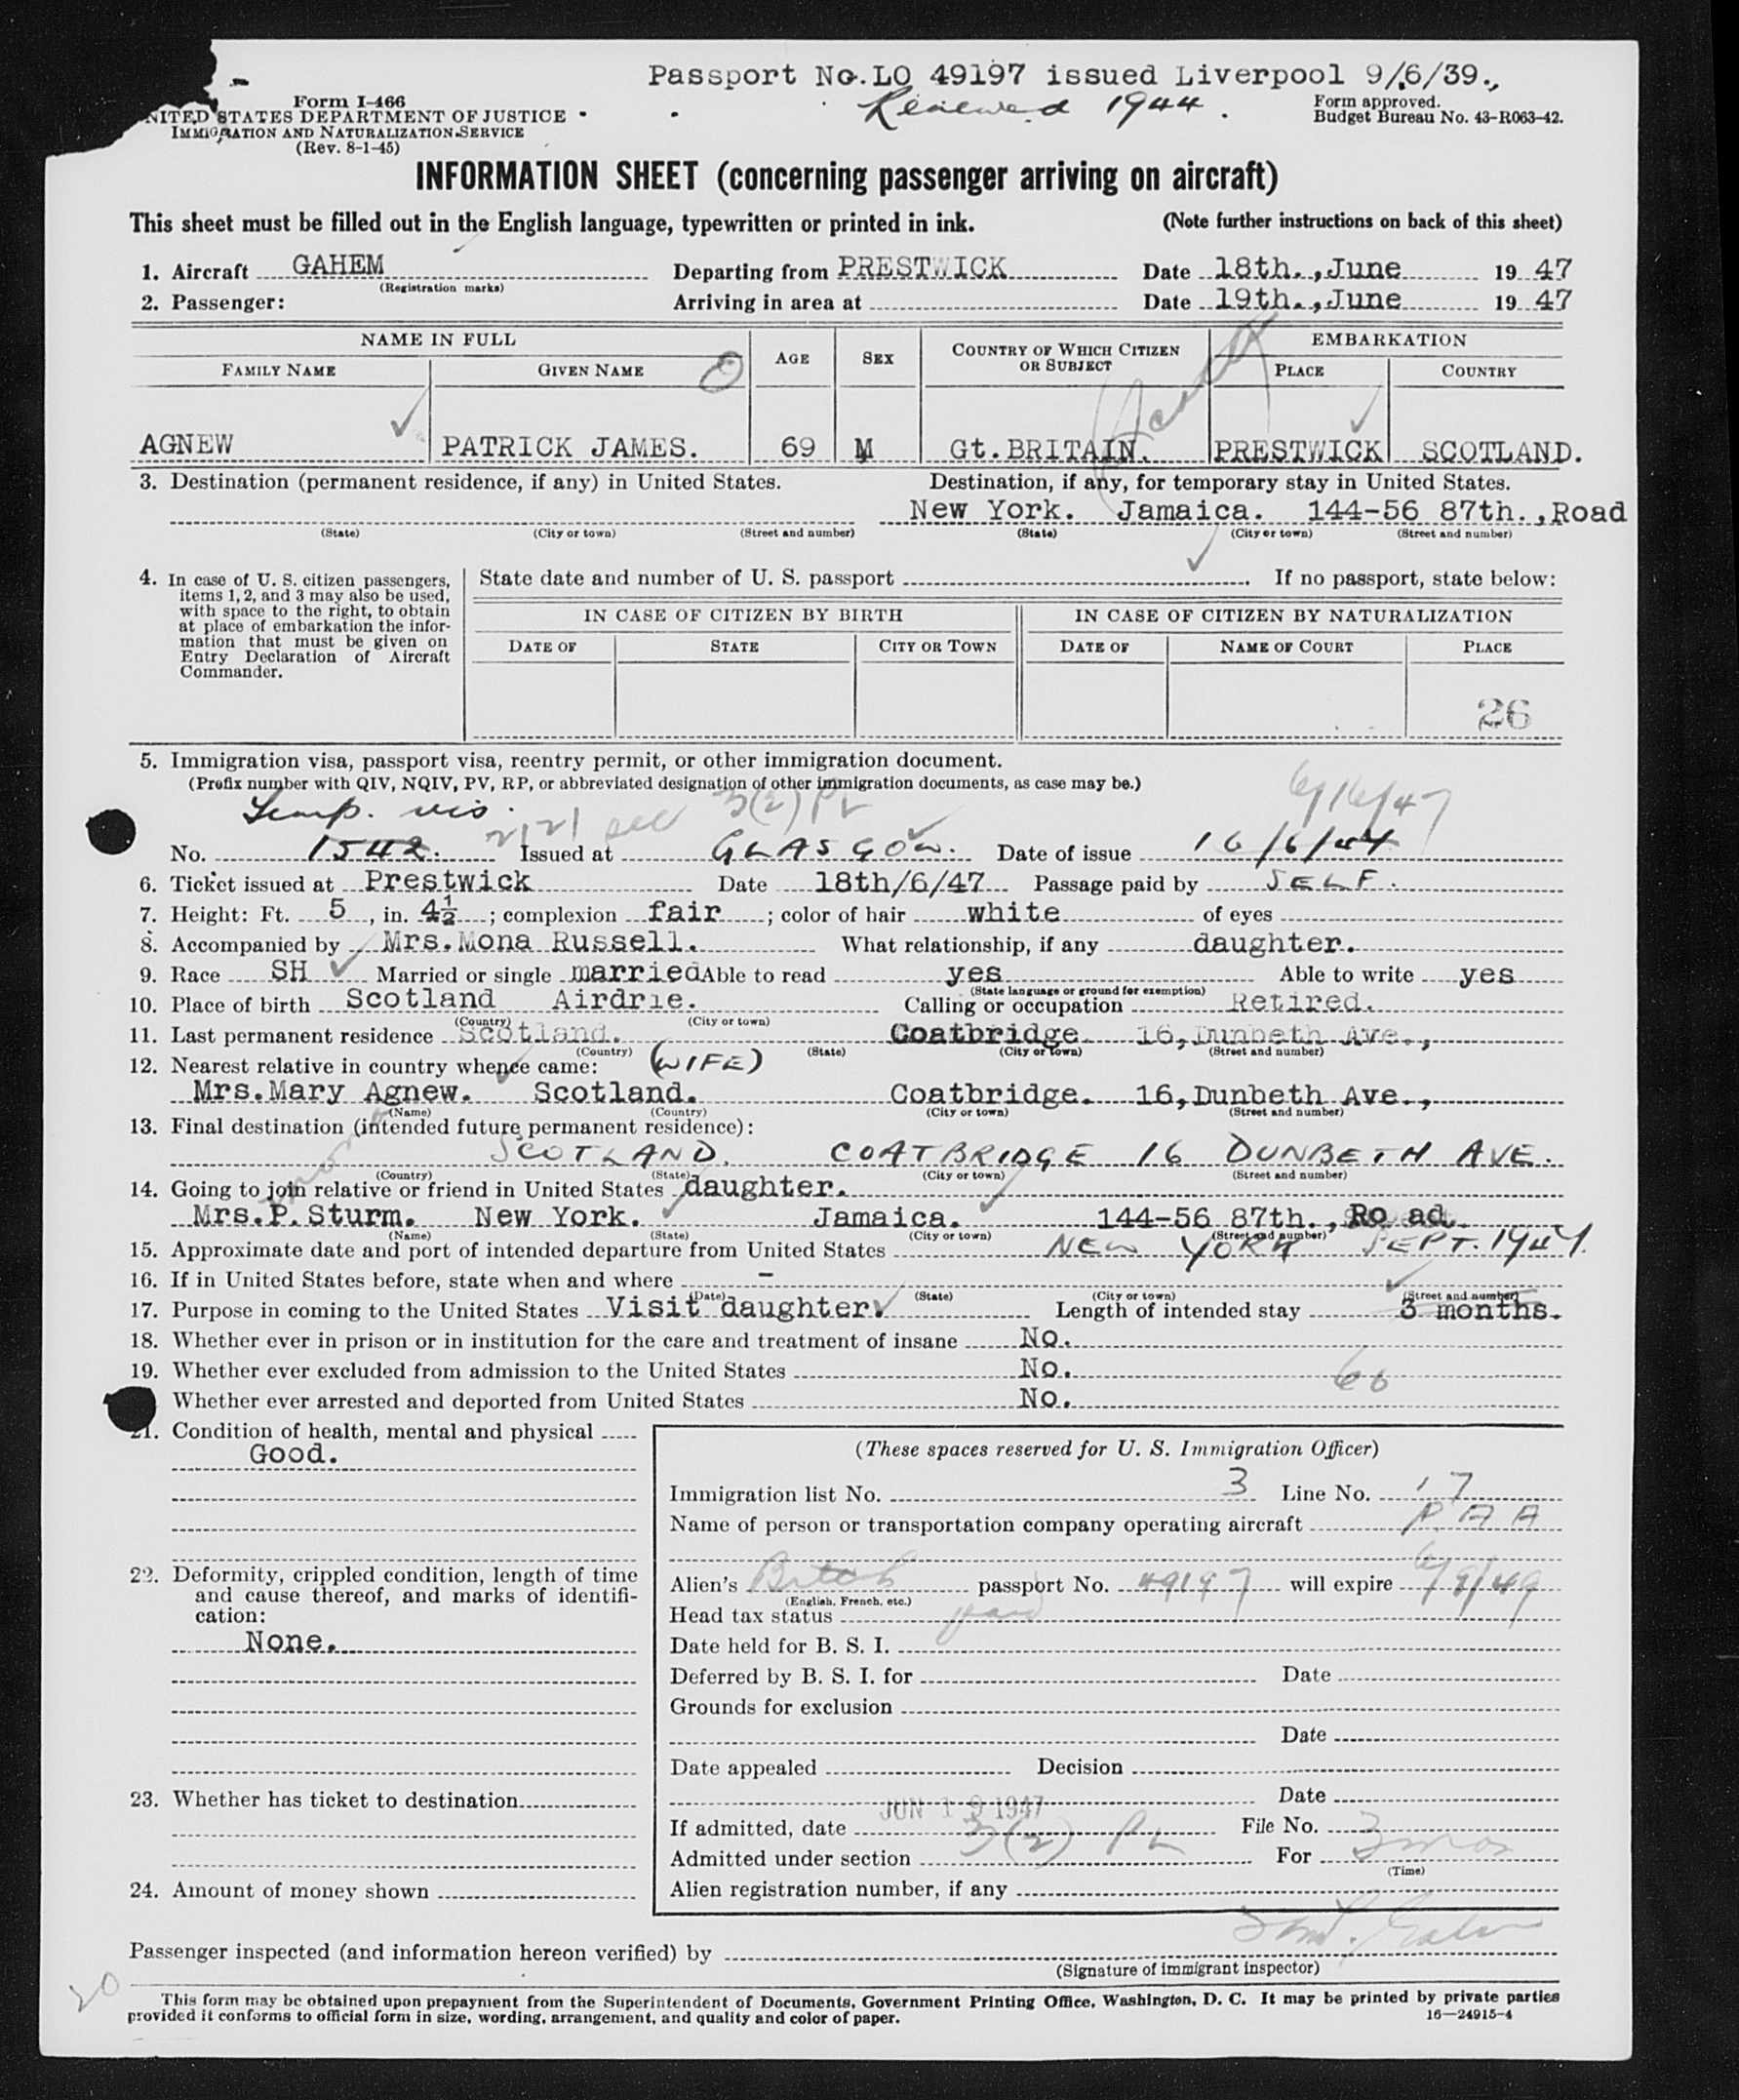 Passport No.LO 49197 issued Liverpool 9/6/39.,
Renewed 1944.
Form I-466
UNITED STATES DEPARTMENT OF JUSTICE
IMMIGRATION AND NATURALIZATION SERVICE
(Rev. 8-1-45)
Form approved.
Budget Bureau No. 43-R063-42.
INFORMATION SHEET (concerning passenger arriving on aircraft)
This sheet must be filled out in the English language, typewritten or printed in ink. (Note further instructions on back of this sheet)
1. Aircraft GAHEM Departing from PRESTWICK Date 18th.,June 19 47
(Registration marks)
2. Passenger: Arriving in area at Date 19th.,June 19 47
NAME IN FULL AGE SEX COUNTRY OF WHICH CITIZEN OR SUBJECT EMBARKATION
FAMILY NAME GIVEN NAME PLACE COUNTRY
AGNEW PATRICK JAMES. 69 M Gt.BRITAIN. PRESTWICK SCOTLAND.
3. Destination (permanent residence, if any) in United States. Destination, if any, for temporary stay in United States.
New York. Jamaica. 144-56 87th.,Road
(State) (City or town) (Street and number) (State) (City or town) (Street and number)
4. In case of U. S. citizen passengers, items 1, 2, and 3 may also be used, with space to the right, to obtain at place of embarkation the information that must be given on Entry Declaration of Aircraft Commander.
State date and number of U. S. passport . If no passport, state below:
IN CASE OF CITIZEN BY BIRTH IN CASE OF CITIZEN BY NATURALIZATION
DATE OF STATE CITY OR TOWN DATE OF NAME OF COURT PLACE
26
5. Immigration visa, passport visa, reentry permit, or other immigration document.
(Prefix number with QIV, NQIV, PV, RP, or abbreviated designation of other immigration documents, as case may be.)
Temp. vis. 3(2) PV 6/16/47
No. 1542. Issued at GLASGOW. Date of issue 16/6/47
6. Ticket issued at Prestwick Date 18th/6/47 Passage paid by SELF.
7. Height: Ft. 5, in. 4½; complexion fair; color of hair white of eyes
8. Accompanied by Mrs.Mona Russell. What relationship, if any daughter.
9. Race SH Married or single married Able to read yes Able to write yes
(State language or ground for exemption)
10. Place of birth Scotland Airdrie. Calling or occupation Retired.
(Country) (City or town)
11. Last permanent residence Scotland. Coatbridge 16,Dunbeth Ave.,
(Country) (State) (City or town) (Street and number)
12. Nearest relative in country whence came: (WIFE)
Mrs.Mary Agnew. Scotland. Coatbridge. 16,Dunbeth Ave.,
(Name) (Country) (City or town) (Street and number)
13. Final destination (intended future permanent residence):
SCOTLAND. COATBRIDGE 16 DUNBETH AVE.
(Country) (State) (City or town) (Street and number)
14. Going to join relative or friend in United States daughter.
Mrs.P.Sturm. New York. Jamaica. 144-56 87th.,Ro ad.
(Name) (State) (City or town) (Street and number)
15. Approximate date and port of intended departure from United States NEW YORK SEPT. 1947.
16. If in United States before, state when and where -
(Date) (State) (City or town) (Street and number)
17. Purpose in coming to the United States Visit daughter. Length of intended stay 3 months.
18. Whether ever in prison or in institution for the care and treatment of insane No.
19. Whether ever excluded from admission to the United States No.
60
Whether ever arrested and deported from United States No.
21. Condition of health, mental and physical
Good.
22. Deformity, crippled condition, length of time and cause thereof, and marks of identification:
None.
23. Whether has ticket to destination
24. Amount of money shown
(These spaces reserved for U. S. Immigration Officer)
Immigration list No. 3 Line No. 17
Name of person or transportation company operating aircraft P A A
Alien's British passport No. 49197 will expire 6/9/49
(English, French, etc.)
Head tax status paid
Date held for B. S. I.
Deferred by B. S. I. for Date
Grounds for exclusion
Date
Date appealed Decision
Date
If admitted, date JUN 19 1947 File No.
Admitted under section 3(2) PV For 3 mos
(Time)
Alien registration number, if any
Passenger inspected (and information hereon verified) by
(Signature of immigrant inspector)
20
This form may be obtained upon prepayment from the Superintendent of Documents, Government Printing Office, Washington, D. C. It may be printed by private parties
provided it conforms to official form in size, wording, arrangement, and quality and color of paper.
16—24915-4